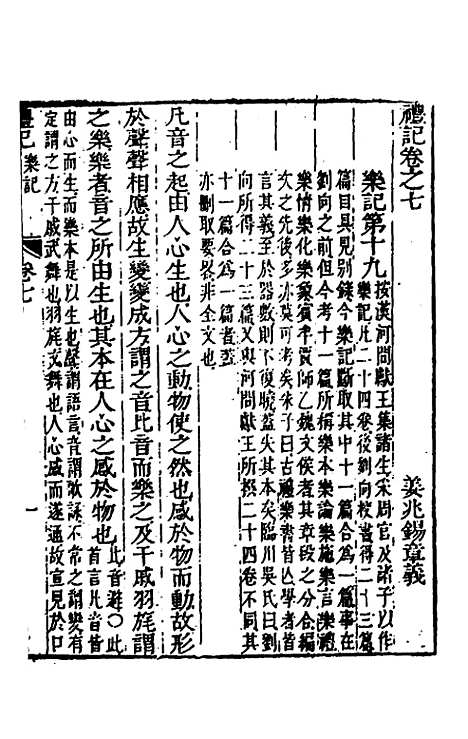 禮記卷之七
姜兆錫章義
樂記第十九按漢河間獻王集諸生采周官及諸子以作
樂記凡二十四卷後劉向校書得二十三篇
篇目具見別錄今樂記斷取其中十一篇合為一篇事在
劉向之前但今考十一篇所稱樂本樂論樂施樂言樂禮
樂情樂化樂象賓牟賈師乙魏文侯者其章段之分合篇
次之先後多亦莫可考矣朱子曰古禮樂書皆亾學者皆
言其義至於器數則不復曉蓋失其本矣臨川吳氏曰劉
向所得二十三篇又與河間獻王所撰二十四卷不同其
十一篇合為一篇者蓋
亦刪取要畧非全文也
凡音之起由人心生也人心之動物使之然也感於物而動故形
於聲聲相應故生變變成方謂之音比音而樂之及干戚羽旄謂
之樂樂者音之所由生也其本在人心之感於物也此音避〇此
首言凡音皆
由心而生而樂本是以生也聲謂語言音謂歌詠不常之謂變有
定謂之方干戚武舞也羽旄文舞也人心感而遂通故宣見於口
禮記 樂記 卷七 一